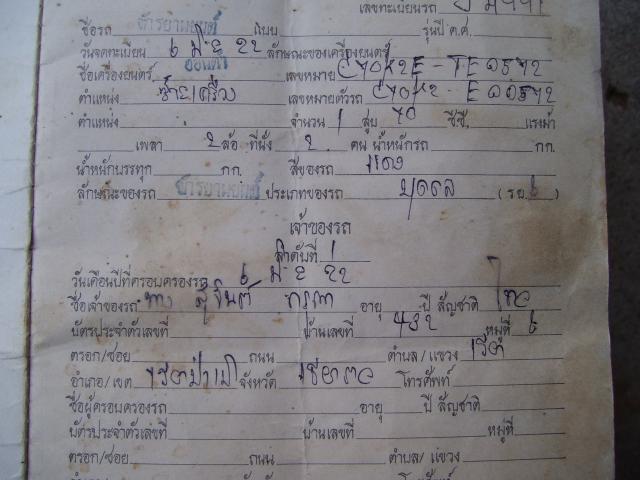 เลขทะเบียนรถ
ชื่อรถ จักรยานยนต์ แบบ รุ่นปี ค.ศ.
วันจดทะเบียน 6 มิย 22 ลักษณะของเครื่องยนต์
ชื่อเครื่องยนต์ ฮอนด้า เลขหมาย C70K2E-TE
ตำแหน่ง ซ้ายเครื่อง เลขหมายตัวรถ C70K2-E
ตำแหน่ง จำนวน 1 สูบ 70 ซี.ซี. แรงม้า
เพลา 2 ล้อ ที่นั่ง 2 คน น้ำหนักรถ กก.
น้ำหนักบรรทุก กก. สีของรถ แดง
ลักษณะของรถ จักรยานยนต์ ประเภทของรถ บุคคล (รย. )
เจ้าของรถ
ลำดับที่ 1
วันเดือนปีที่ครอบครองรถ 6 มิย 22
ชื่อเจ้าของรถ นาง อายุ ปี สัญชาติ ไทย
บัตรประจำตัวเลขที่ บ้านเลขที่ 432 หมู่ที่ 6
ตรอก/ซอย ถนน ตำบล/แขวง เวียง
อำเภอ/เขต เวียงป่าเป้า จังหวัด เชียงราย โทรศัพท์
ชื่อผู้ครอบครองรถ อายุ ปี สัญชาติ
บัตรประจำตัวเลขที่ บ้านเลขที่ หมู่ที่
ตรอก/ซอย ถนน ตำบล/แขวง